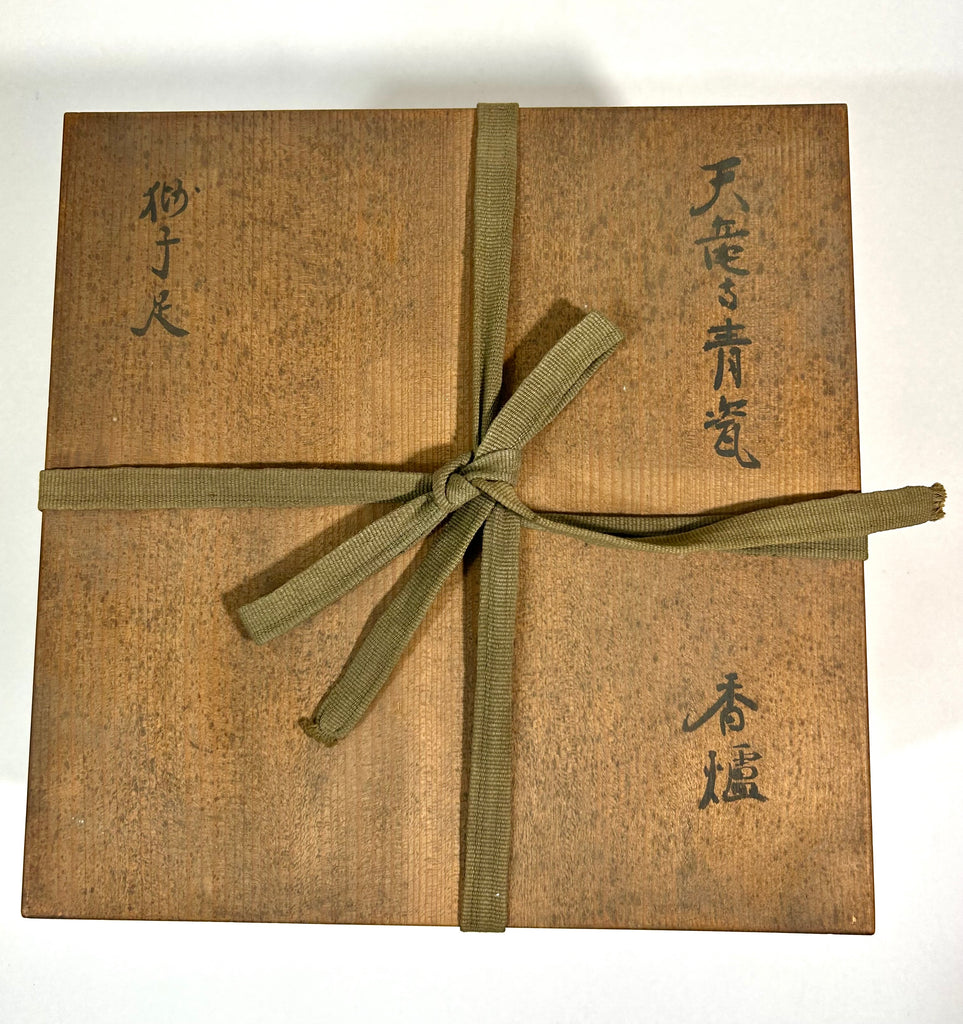 天竜寺青瓷
香爐
獅子足